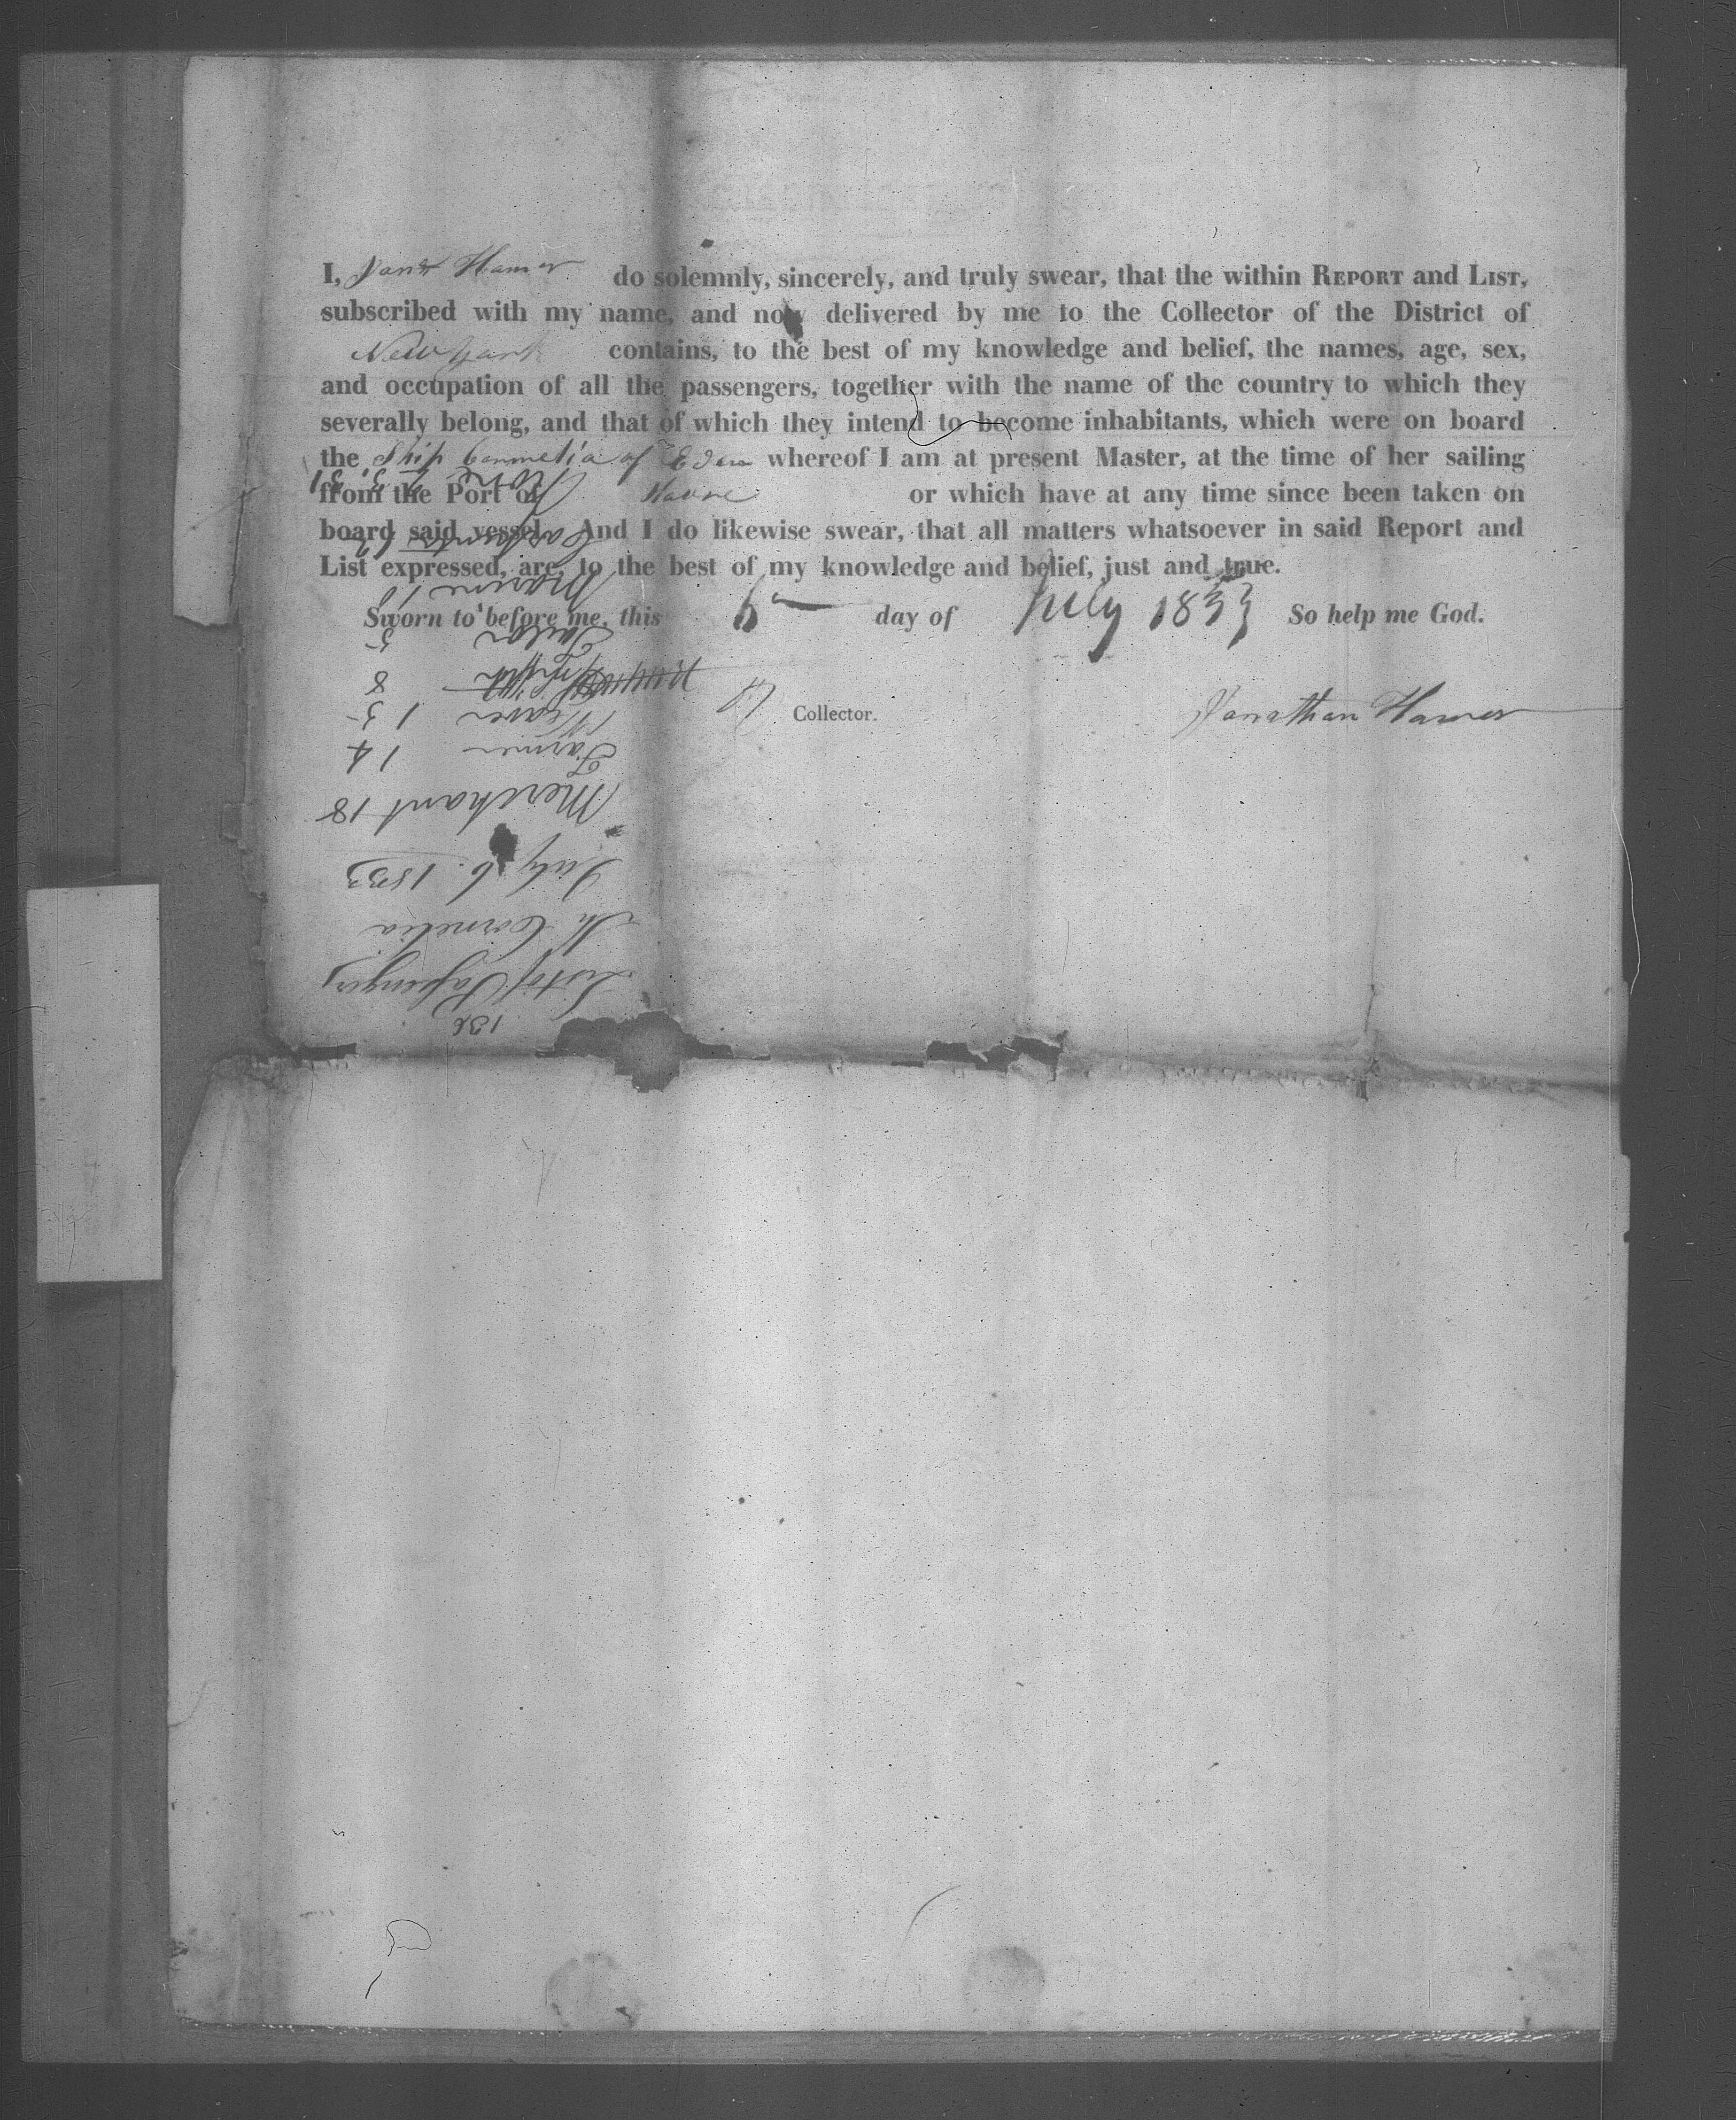 I, Jonth Hamer do solemnly, sincerely, and truly swear, that the within REPORT and LIST,
subscribed with my name, and now delivered by me to the Collector of the District of
New York contains, to the best of my knowledge and belief, the names, age, sex,
and occupation of all the passengers, together with the name of the country to which they
severally belong, and that of which they intend to become inhabitants, which were on board
the Ship Cornelia of Eden whereof I am at present Master, at the time of her sailing
from the Port of Havre or which have at any time since been taken on
board said vessel. And I do likewise swear, that all matters whatsoever in said Report and
List expressed, are, to the best of my knowledge and belief, just and true.
Sworn to before me, this 6th day of July 1833 So help me God.
Collector.
Jonathan Hamer
List of Passengers
Sh Cornelia
July 6. 1833
Merchant 18
Farmer 14
Weaver 13
Smith 8
Tailor 5